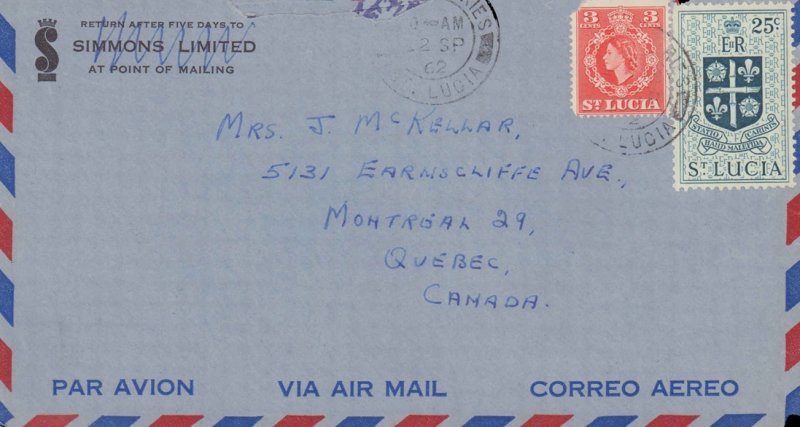 RETURN AFTER FIVE DAYS TO
SIMMONS LIMITED
AT POINT OF MAILING
AM
2 SP
62
LUCIA
3 3
CENTS CENTS
ST LUCIA
25c
E II R
STATIO HAUD MALEFIDA CARINIS
ST LUCIA
LUCIA
MRS. J. MCKELLAR,
5131 EARNSCLIFFE AVE.,
MONTREAL 29,
QUEBEC,
CANADA.
PAR AVION VIA AIR MAIL CORREO AEREO